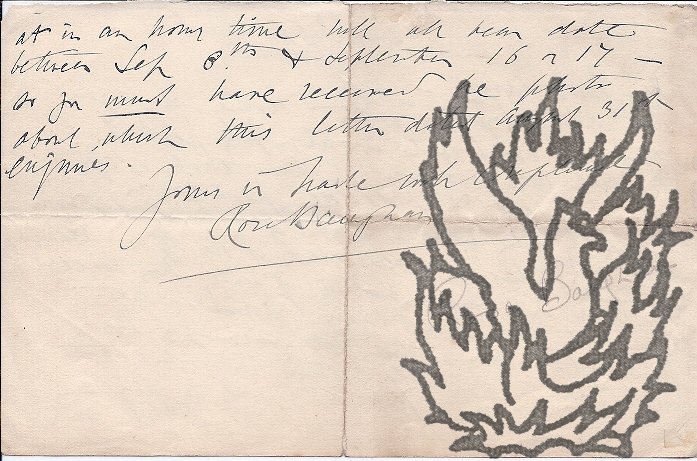 at in an hours time will all bear date
between Sep 8th & September 16 or 17 –
so you must have received the photo
about which this letter dated August 31st
enquires.
Yours in haste with
Rose Baughan